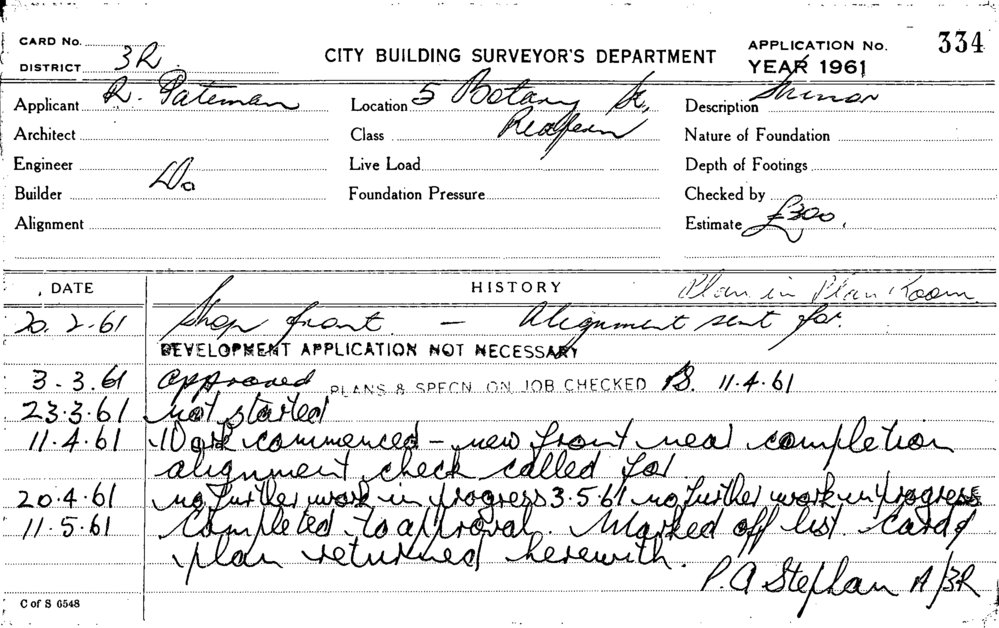 CARD No.
DISTRICT 3R
CITY BUILDING SURVEYOR'S DEPARTMENT
APPLICATION No. 334
YEAR 1961
Applicant R. Pateman
Location 5 Botany St,
Redfern
Description Minor
Architect
Class
Nature of Foundation
Engineer
Live Load
Depth of Footings
Builder Do
Foundation Pressure
Checked by
Alignment
Estimate £300.
DATE
HISTORY
Plan in Plan Room
20.2.61 Shop front. — Alignment sent for.
DEVELOPMENT APPLICATION NOT NECESSARY
3-3.61 Approved PLANS & SPECN. ON JOB CHECKED PS. 11-4-61
23.3.61 not started
11.4.61 Work commenced - new front near completion
alignment check called for
20.4.61 no further work in progress 3.5.61 no further work in progress
11.5.61 Completed to approval. Marked off list. Card &
plan returned herewith.
P. A Stephan A/3R
C of S 6548